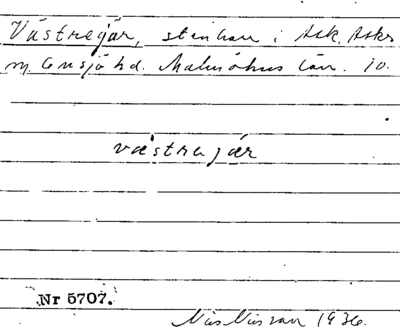 Västregär, stenhav i Ask, Asks
sn, Onsjö hd. Malmöhus län. 10.
västrajär
Nr 5707.
Nils Nilsson 1936.